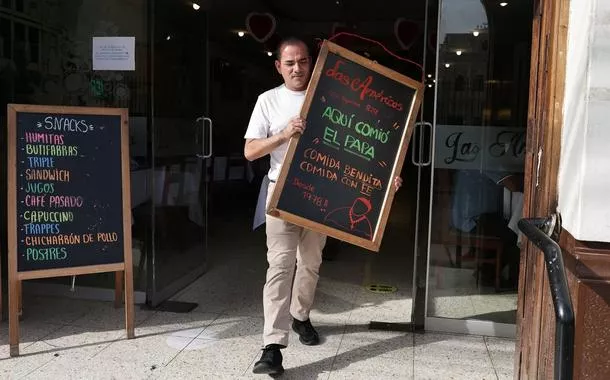 SNACKS
HUMITAS
BUTIFARRAS
TRIPLE
SANDWICH
JUGOS
CAFÉ PASADO
CAPUCCINO
FRAPPES
CHICHARRÓN DE POLLO
POSTRES
Las Américas
AQUÍ COMIÓ
EL PAPA
COMIDA BENDITA
COMIDA CON FE
Desde
1978
Las